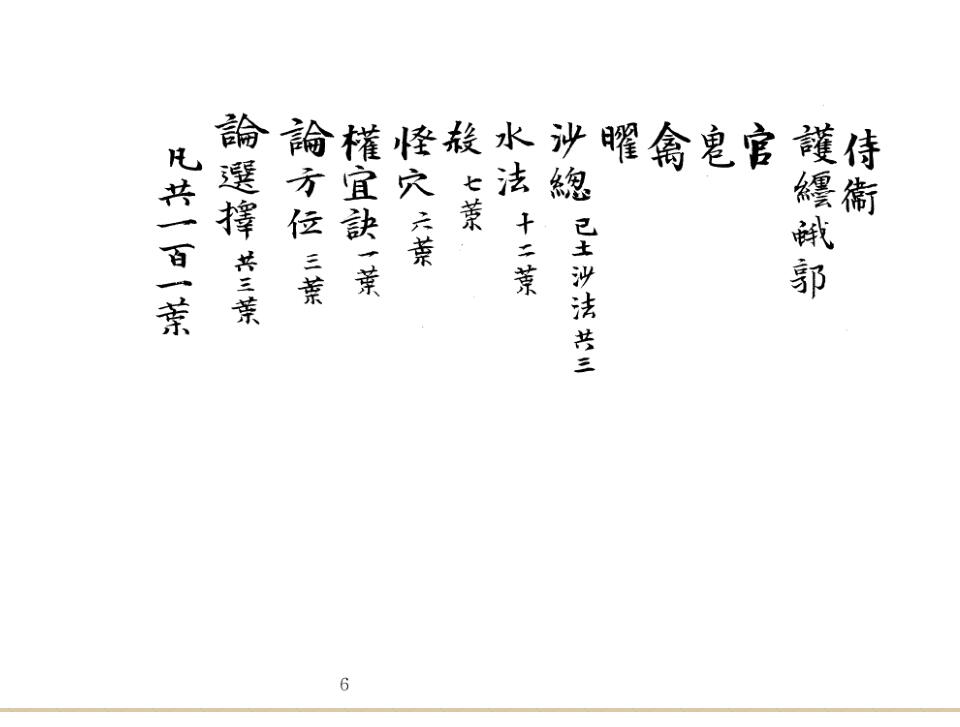 侍衛
護纏郭
官
鬼
禽
曜
沙總 已土沙法共三
水法 十二葉
殺 七葉
怪穴 六葉
權宜訣 一葉
論方位 三葉
論選擇 共三葉
凡共一百一葉
6